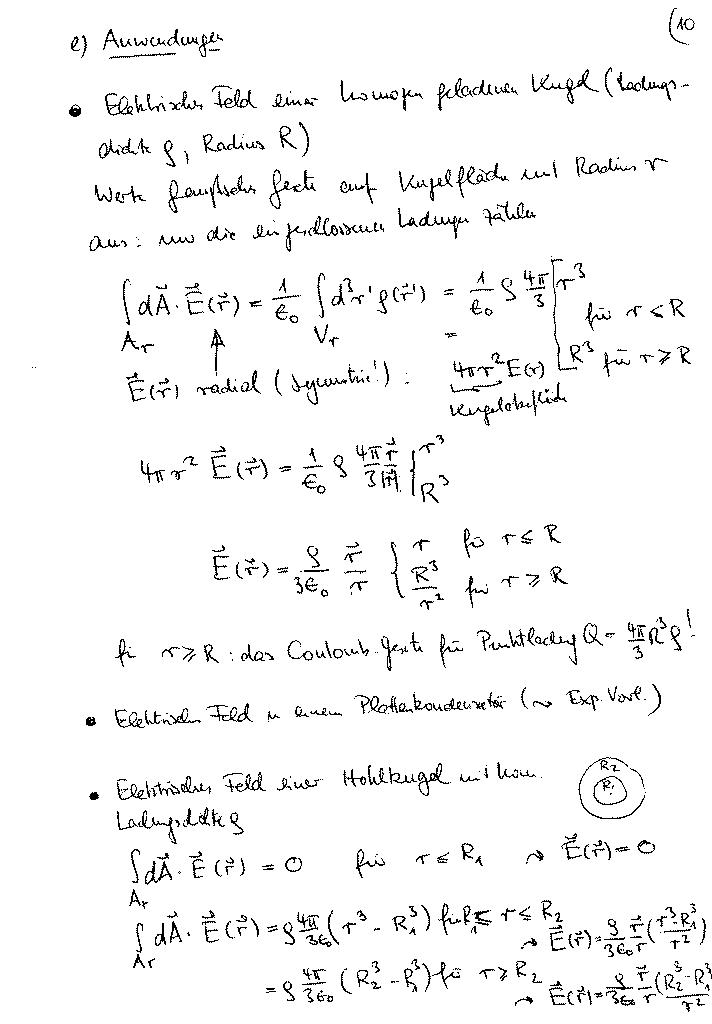 (10
e) Anwendungen
• Elektrisches Feld einer homogen geladenen Kugel (Ladungs-
dichte ρ, Radius R)
Werte Gaußsches Gesetz auf Kugelfläche mit Radius r
aus: nur die eingeschlossenen Ladungen zählen
∫_{A_r} dA⃗ · E⃗(r⃗) = 1/ε₀ ∫_{V_r} d³r' ρ(r⃗') = 1/ε₀ ρ 4π/3 [ r³ für r ≤ R
R³ für r ≥ R
E⃗(r⃗) radial (Symmetrie!) : = 4πr² E(r)
Kugeloberfläche
4πr² E⃗(r⃗) = 1/ε₀ ρ 4π/3 r⃗/|r⃗| { r³
R³
E⃗(r⃗) = ρ/3ε₀ r⃗/r { r für r ≤ R
R³/r² für r ≥ R
für r ≥ R : das Coulomb-Gesetz für Punktladung Q = 4π/3 R³ ρ !
• Elektrisches Feld in einem Plattenkondensator (↝ Exp. Vorl.)
• Elektrisches Feld einer Hohlkugel mit hom.
Ladungsdichte ρ
R₂
R₁
∫_{A_r} dA⃗ · E⃗(r⃗) = 0 für r ≤ R₁ ↝ E⃗(r⃗) = 0
∫_{A_r} dA⃗ · E⃗(r⃗) = ρ 4π/3ε₀ (r³ - R₁³) für R₁ ≤ r ≤ R₂
↝ E⃗(r⃗) = ρ/3ε₀ r⃗/r (r³-R₁³/r²)
= ρ 4π/3ε₀ (R₂³ - R₁³) für r ≥ R₂
↝ E⃗(r⃗) = ρ/3ε₀ r⃗/r (R₂³-R₁³/r²